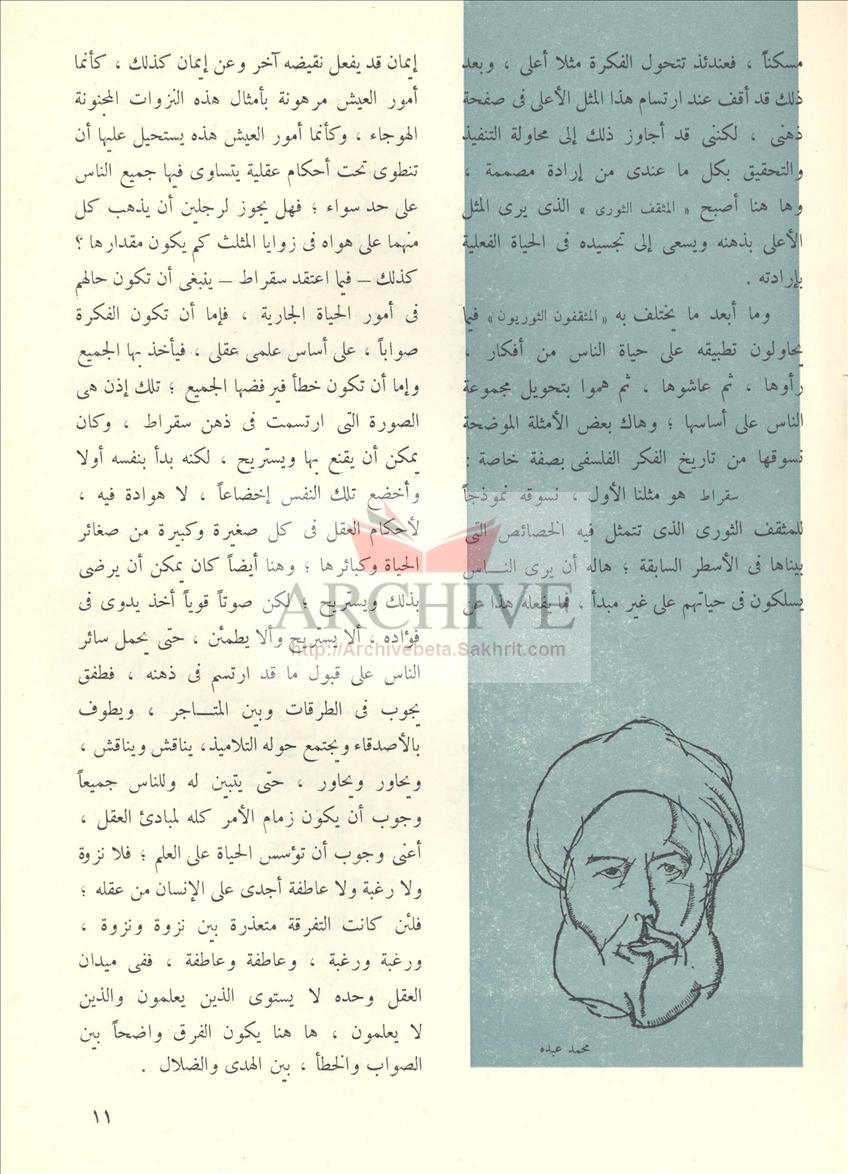 مسكناً ، فعندئذ تتحول الفكرة مثلا أعلى ، وبعد
ذلك قد أقف عند ارتسام هذا المثل الأعلى فى صفحة
ذهنى ، لكننى قد أجاوز ذلك إلى محاولة التنفيذ
والتحقيق بكل ما عندى من إرادة مصممة ،
وها هنا أصبح « المثقف الثورى » الذى يرى المثل
الأعلى بذهنه ويسعى إلى تجسيده فى الحياة الفعلية
بإرادته .
وما أبعد ما يختلف به « المثقفون الثوريون » فيا
يحاولون تطبيقه على حياة الناس من أفكار ،
رأوها ، ثم عاشوها ، ثم هموا بتحويل مجموعة
الناس على أساسها ؛ وهاك بعض الأمثلة الموضحة
نسوقها من تاريخ الفكر الفلسفى بصفة خاصة :
سقراط هو مثلنا الأول ، نسوقه نموذجاً
للمثقف الثورى الذى تتمثل فيه الخصائص التى
بيناها فى الأسطر السابقة ؛ هاله أن يرى النـــاس
يسلكون فى حياتهم على غير مبدأ ، فما يفعله هذا عن
محمد عبده
إيمان قد يفعل نقيضه آخر وعن إيمان كذلك ، كأنما
أمور العيش مرهونة بأمثال هذه النزوات المجنونة
الهوجاء ، وكأنما أمور العيش هذه يستحيل عليها أن
تنطوى تحت أحكام عقلية يتساوى فيها جميع الناس
على حد سواء ؛ فهل يجوز لرجلين أن يذهب كل
منهما على هواه فى زوايا المثلث كم يكون مقدارها ؟
كذلك – فيما اعتقد سقراط – ينبغى أن تكون حالهم
فى أمور الحياة الجارية ، فإما أن تكون الفكرة
صواباً ، على أساس علمى عقلى ، فيأخذ بها الجميع
وإما أن تكون خطأ فيرفضها الجميع ؛ تلك إذن هى
الصورة التى ارتسمت فى ذهن سقراط ، وكان
يمكن أن يقنع بها ويستريح ، لكنه بدأ بنفسه أولا
وأخضع تلك النفس إخضاعاً ، لا هوادة فيه ،
لأحكام العقل فى كل صغيرة وكبيرة من صغائر
الحياة وكبائرها ؛ وهنا أيضاً كان يمكن أن يرضى
بذلك ويستريح ؛ لكن صوتاً قوياً أخذ يدوى فى
فؤاده ، ألا يستريح وألا يطمئن ، حتى يحمل سائر
الناس على قبول ما قد ارتسم فى ذهنه ، فطفق
يجوب فى الطرقات وبين المتـــاجر ، ويطوف
بالأصدقاء ويجتمع حوله التلاميذ، يناقش ويناقش ،
ويحاور ويحاور ، حتى يتبين له وللناس جميعاً
وجوب أن يكون زمام الأمر كله لمبادئ العقل ،
أعنى وجوب أن تؤسس الحياة على العلم ؛ فلا نزوة
ولا رغبة ولا عاطفة أجدى على الإنسان من عقله ؛
فلئن كانت التفرقة متعذرة بين نزوة ونزوة ،
ورغبة ورغبة ، وعاطفة وعاطفة ، ففى ميدان
العقل وحده لا يستوى الذين يعلمون والذين
لا يعلمون ، ها هنا يكون الفرق واضحاً بين
الصواب والخطأ ، بين الهدى والضلال .
١١
ARCHIVE
http://Archivebeta.Sakhrit.com